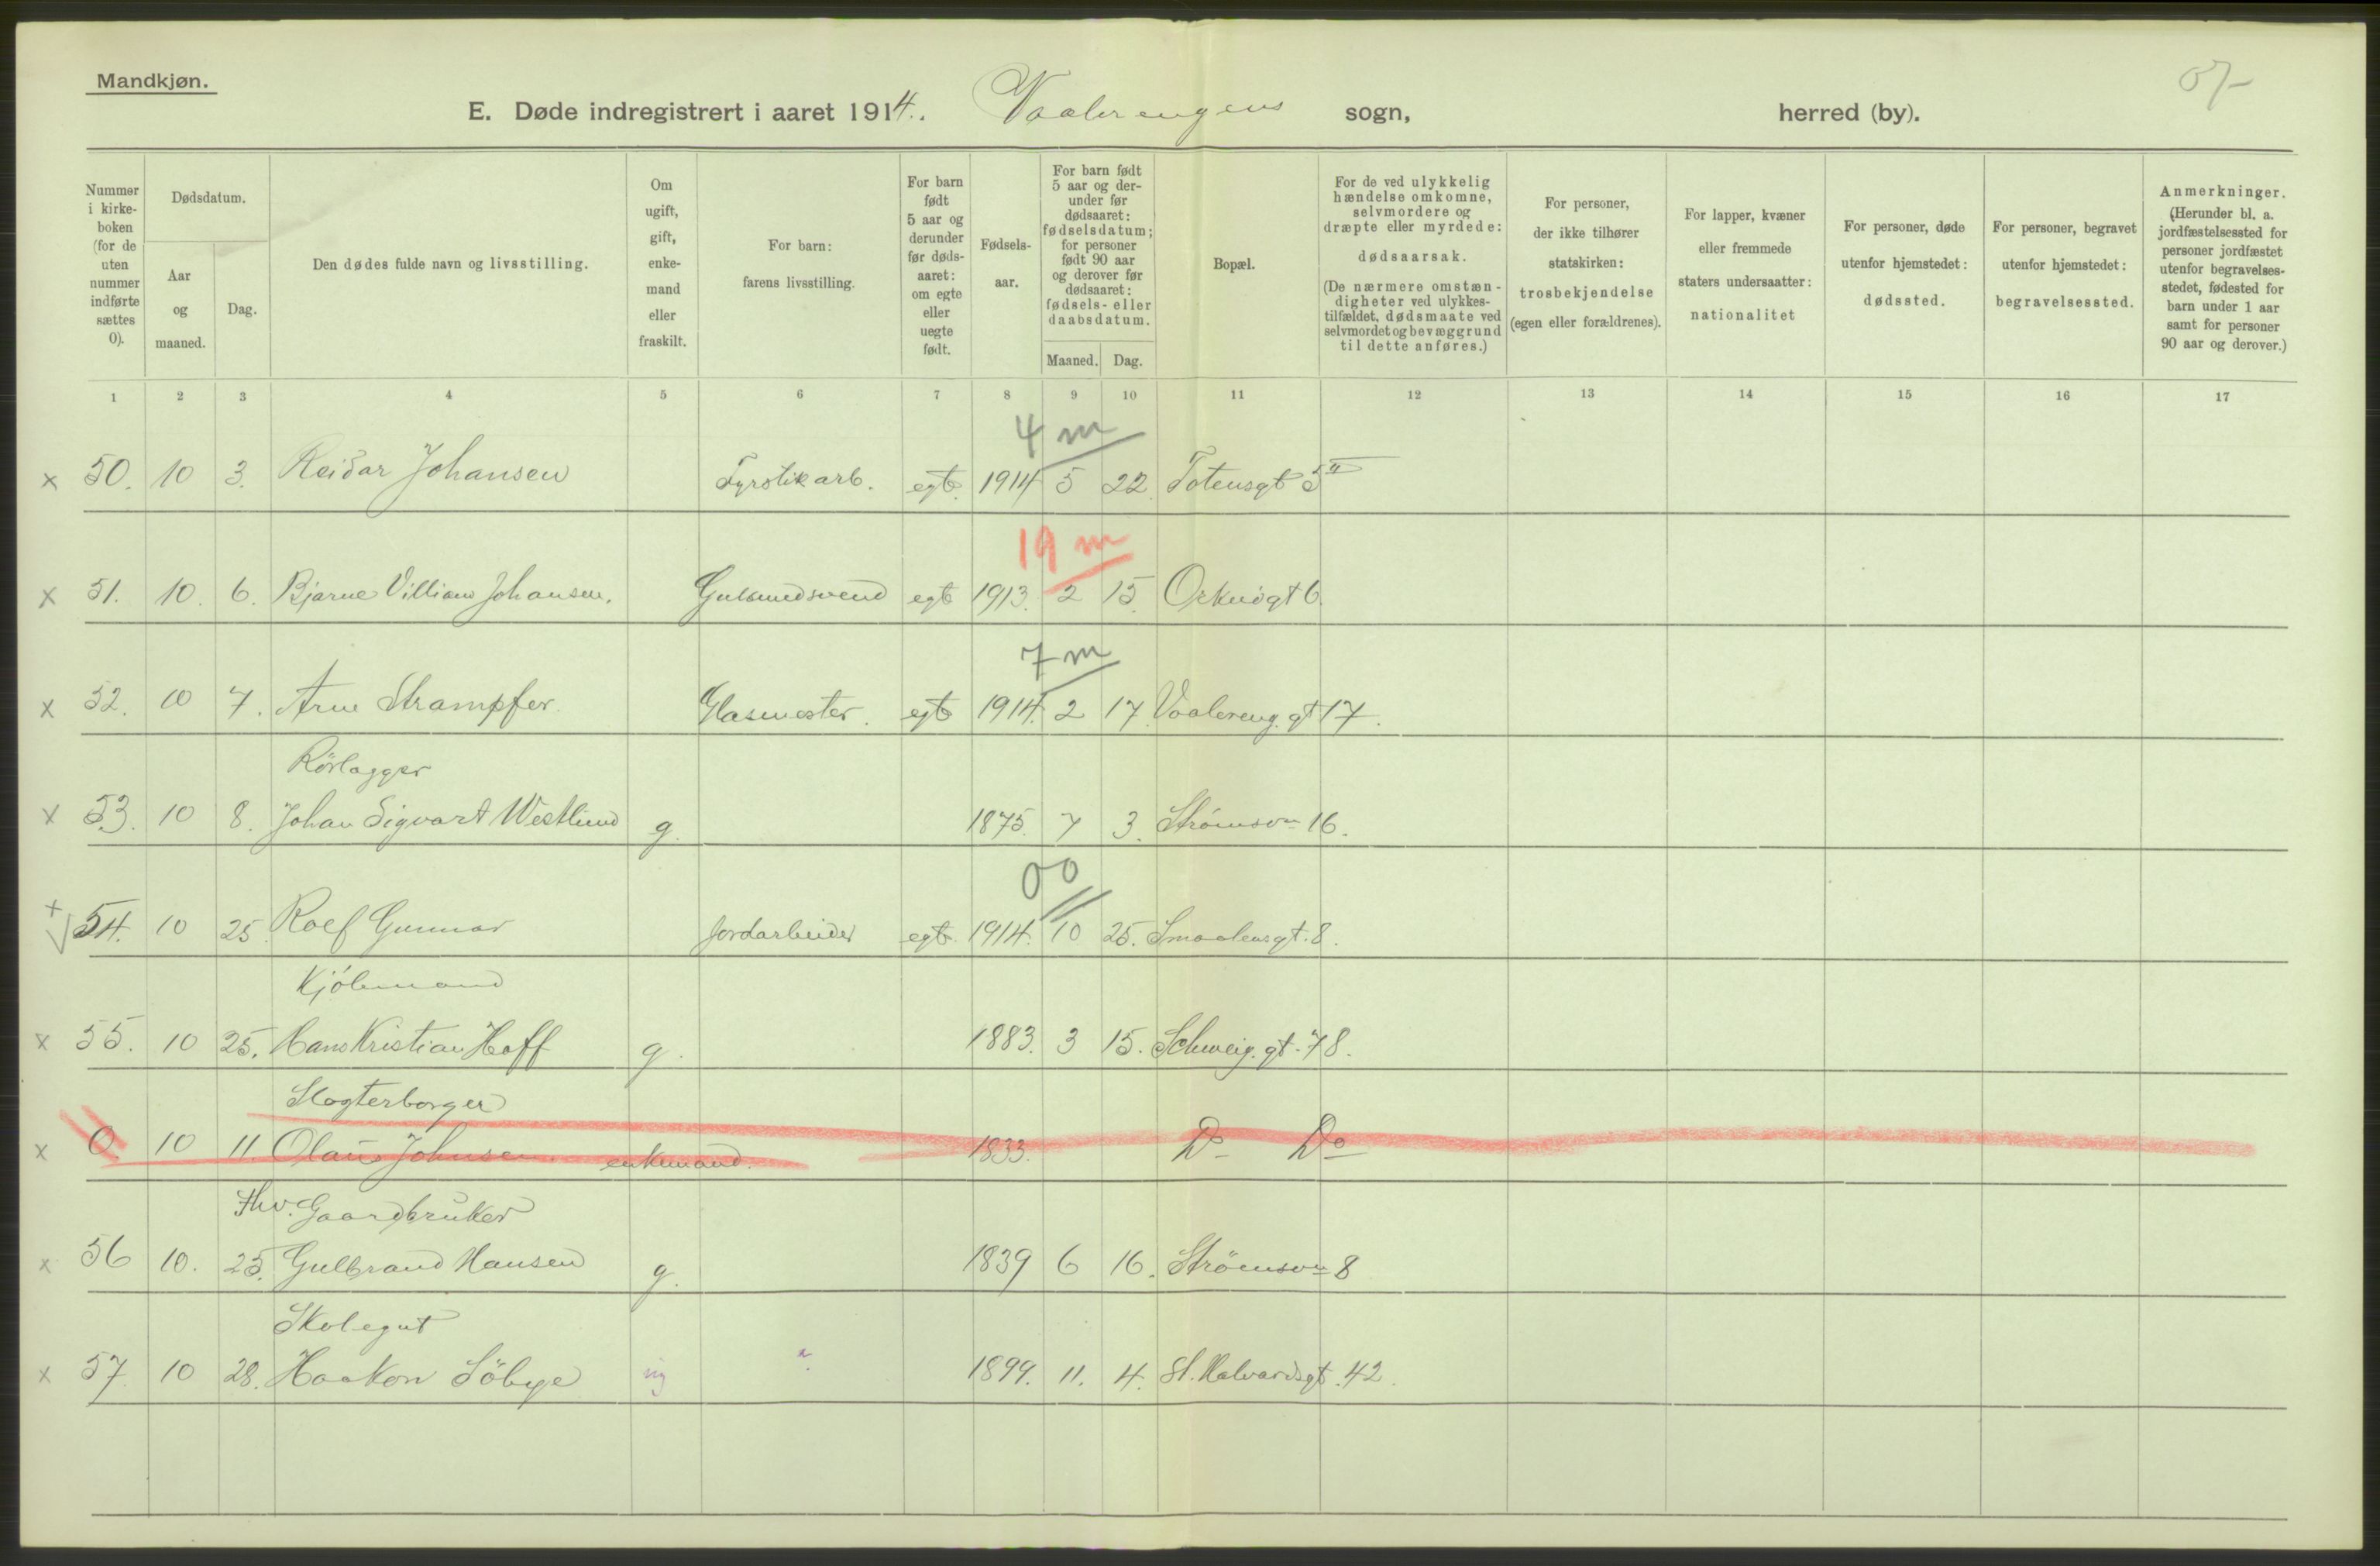 Mandkjøn.
07-
E. Døde indregistrert i aaret 1914. Vaalerengens sogn, herred (by).
Nummer i kirkeboken (for de uten nummer indførte sættes 0).
Dødsdatum.
Aar og maaned.
Dag.
Den dødes fulde navn og livsstilling.
Om ugift, gift, enkemand eller fraskilt.
For barn: farens livsstilling.
For barn født 5 aar og derunder før dødsaaret: om egte eller uegte født.
Fødselsaar.
For barn født 5 aar og derunder før dødsaaret: fødselsdatum; for personer født 90 aar og derover før dødsaaret: fødsels- eller daabsdatum.
Maaned. Dag.
Bopæl.
For de ved ulykkelig hændelse omkomne, selvmordere og dræpte eller myrdede: dødsaarsak. (De nærmere omstændigheter ved ulykkestilfældet, dødsmaate ved selvmordet og bevæggrund til dette anføres.)
For personer, der ikke tilhører statskirken: trosbekjendelse (egen eller forældrenes).
For lapper, kvæner eller fremmede staters undersaatter: nationalitet
For personer, døde utenfor hjemstedet: dødssted.
For personer, begravet utenfor hjemstedet: begravelsessted.
Anmerkninger. (Herunder bl. a. jordfæstelsessted for personer jordfæstet utenfor begravelsesstedet, fødested for barn under 1 aar samt for personer 90 aar og derover.)
1 2 3 4 5 6 7 8 9 10 11 12 13 14 15 16 17
4 m
x 50. 10 3. Reidar Johansen Fyrstikarb. egt. 1914 5 22. Totensgt 5 II
19 m
x 51. 10. 6. Bjarne Villiam Johansen. Gulsmedsvend egt 1913. 2 15. Orknögt 6.
7 m
x 52. 10 7. Arne Strampfer. Glasmester. egt 1914. 2 17. Vaalereng. gt 17.
Rörlægger
x 53. 10 8. Johan Sigvart Westlund g. 1875. 7 3. Strömsvn 16.
00
+ 54. 10 25. Rolf Gunnar Jordarbeider egt. 1914. 10 25. Smaalensgt. 8.
Kjöbmand
x 55. 10 25. Hans Kristian Hoff g. 1883. 3 15. Schweig. gt. 78.
Slagterborger
x 0. 10 11. Olaus Johnsen. enkemand. 1833. Do Do
Fhv. Gaardbruker
x 56 10. 25. Gulbrand Hansen g. 1839 6 16. Strömsvn 8
Skolegut
x 57. 10 28. Haakon Söbye ug ". 1899. 11. 4. St. Halvardsgt. 42.